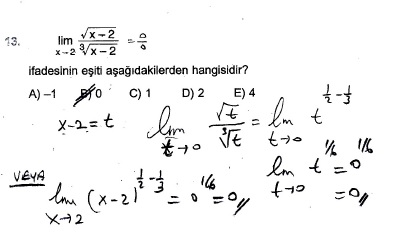 13. lim x→2 √(x-2) / ∛(x-2) = 0/0
ifadesinin eşiti aşağıdakilerden hangisidir?
A) –1 B) 0 C) 1 D) 2 E) 4
x-2=t lim t→0 √t / ∛t = lim t→0 t^(1/2 - 1/3)
lim t→0 t^(1/6) = 0^(1/6) = 0//
VEYA lim x→2 (x-2)^(1/2 - 1/3) = 0^(1/6) = 0//